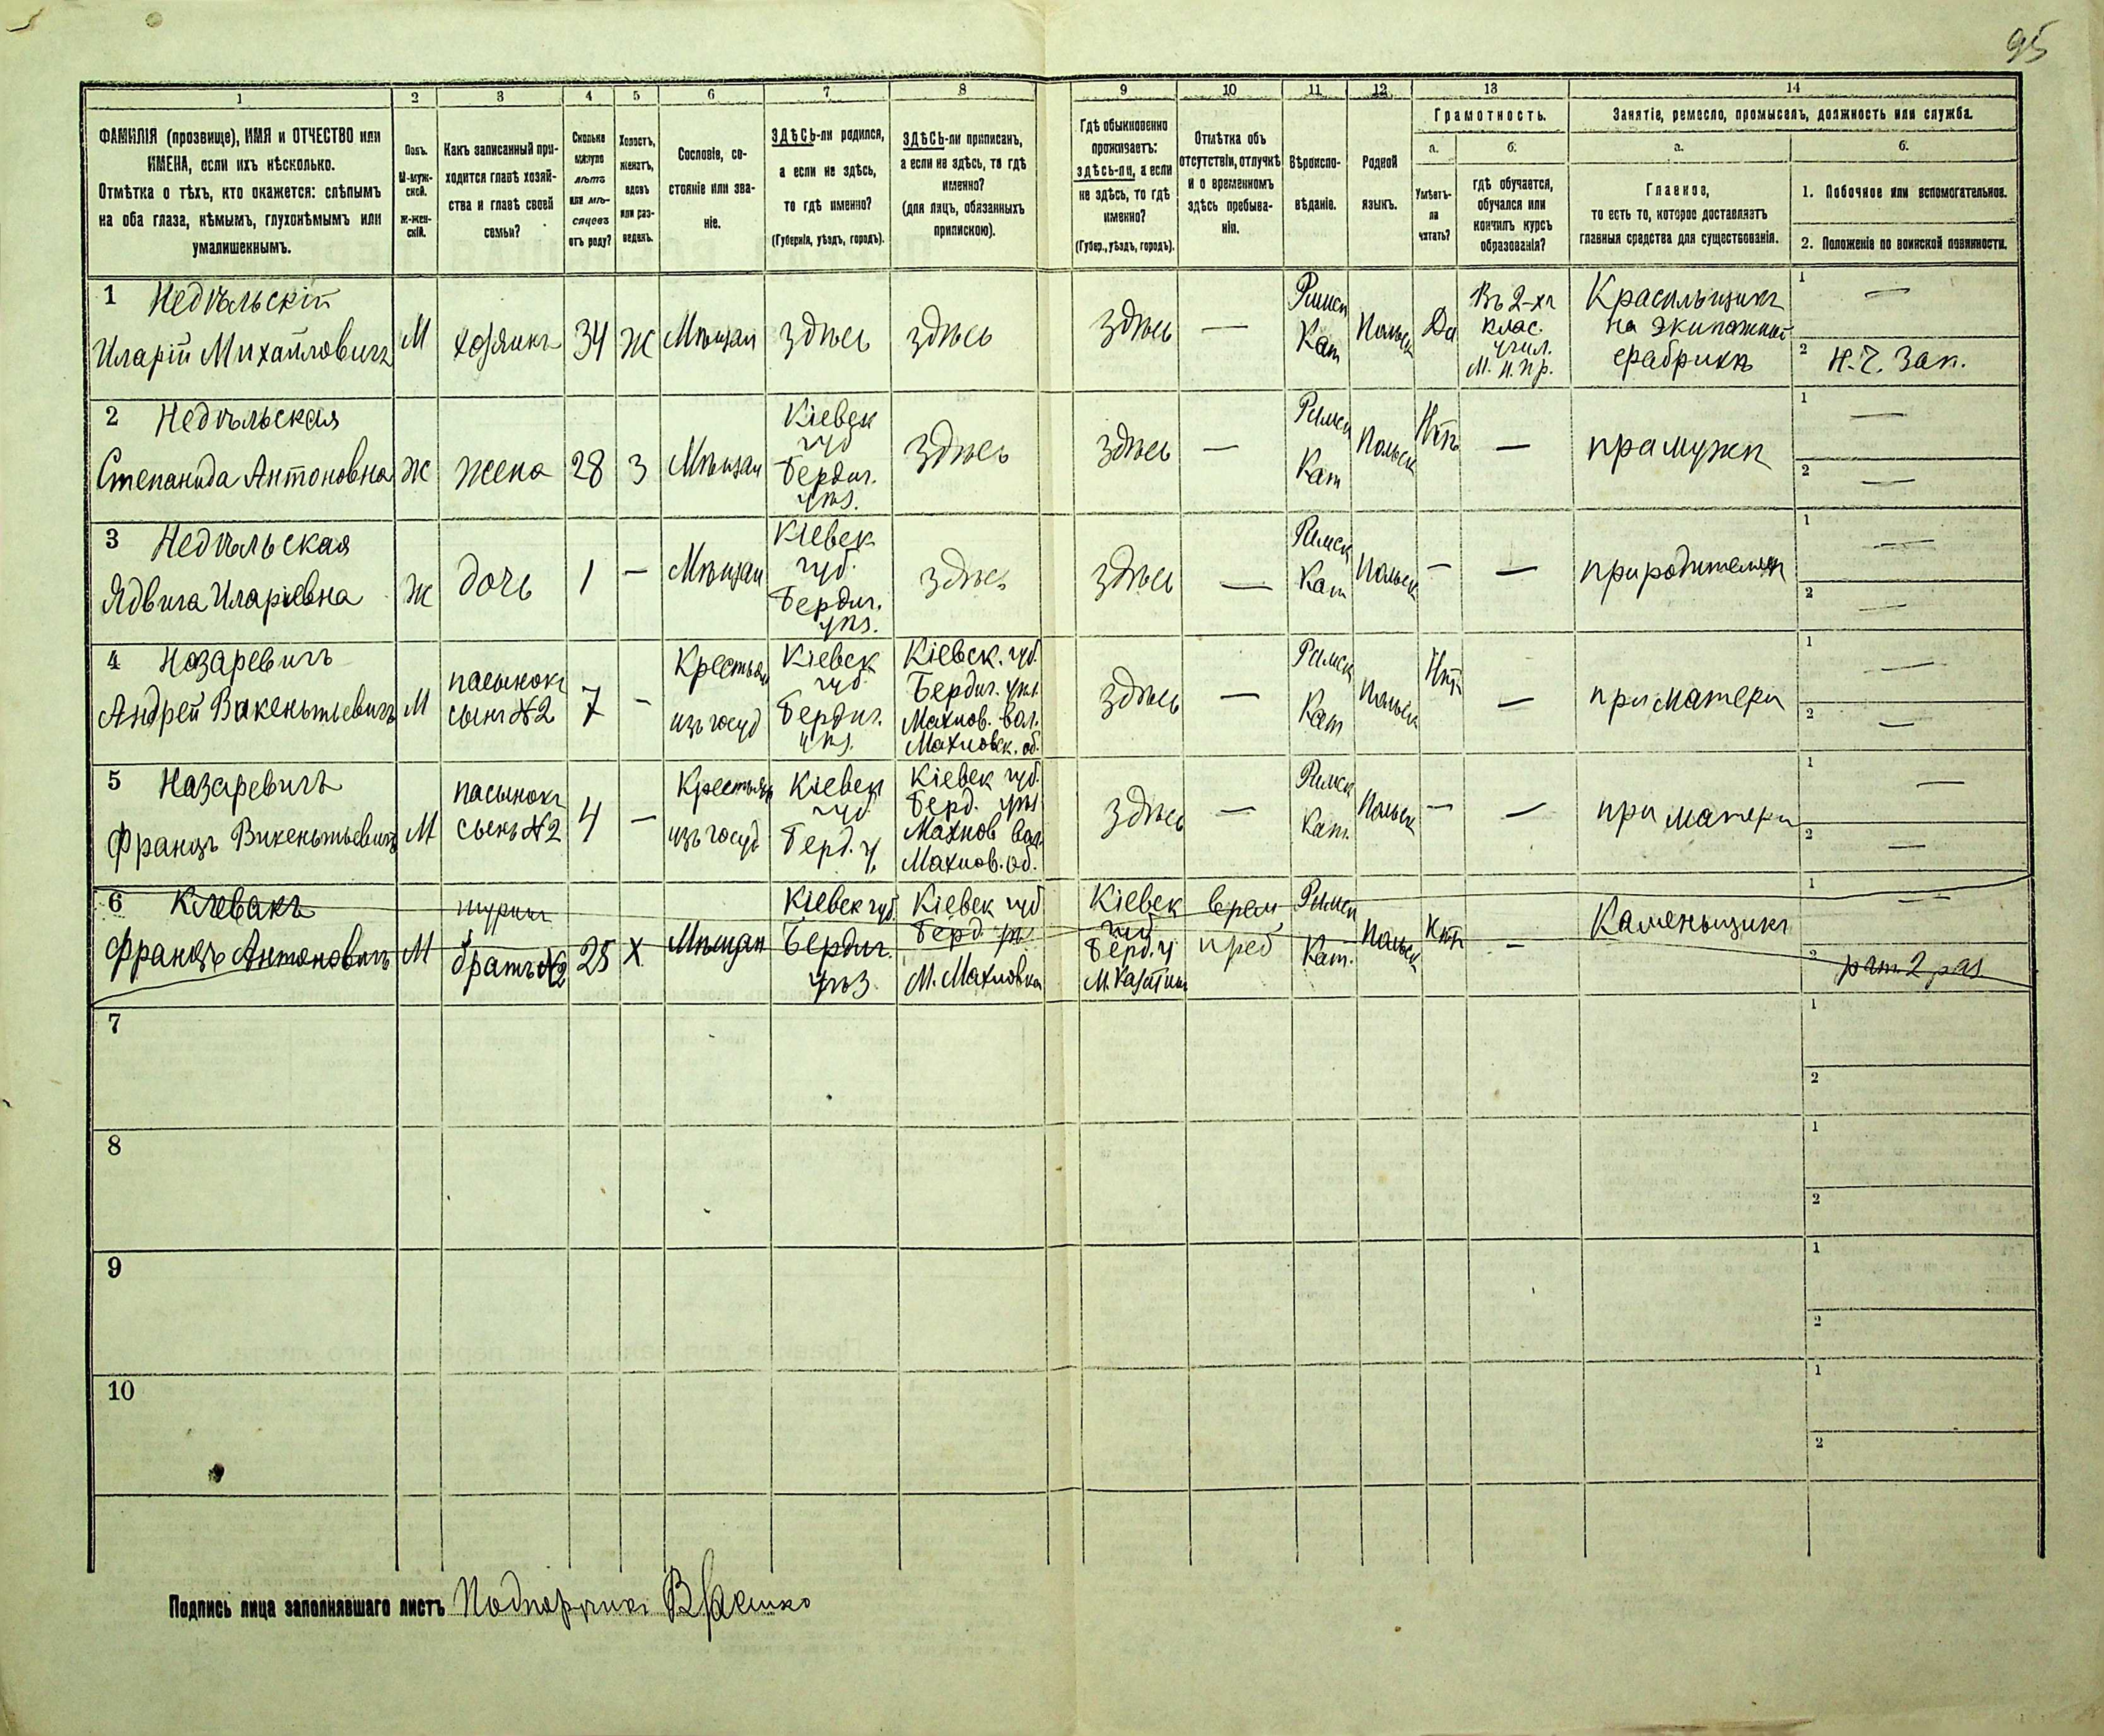 95
1 2 3 4 5 6 7 8 9 10 11 12 13 14
ФАМИЛІЯ (прозвище), ИМЯ и ОТЧЕСТВО или
ИМЕНА, если ихъ нѣсколько.
Отмѣтка о тѣхъ, кто окажется: слѣпымъ
на оба глаза, нѣмымъ, глухонѣмымъ или
умалишеннымъ.
Полъ.
М-муж-
ской.
ж-жен-
скій.
Какъ записанный при-
ходится главѣ хозяй-
ства и главѣ своей
семьи?
Сколько
минуло
лѣтъ
или мѣ-
сяцевъ
отъ роду?
Холостъ,
женатъ,
вдовъ
или раз-
веденъ.
Сословіе, со-
стояніе или зва-
ніе.
ЗДѢСЬ-ли родился,
а если не здѣсь,
то гдѣ именно?
(Губернія, уѣздъ, городъ).
ЗДѢСЬ-ли приписанъ,
а если не здѣсь, то гдѣ
именно?
(для лицъ, обязанныхъ
припискою).
Гдѣ обыкновенно
проживаетъ:
здѣсь-ли, а если
не здѣсь, то гдѣ
именно?
(Губер., уѣздъ, городъ).
Отмѣтка объ
отсутствіи, отлучкѣ
и о временномъ
здѣсь пребыва-
ніи.
Вѣроиспо-
вѣданіе.
Родной
языкъ.
Грамотность.
а.
Умѣетъ-
ли
читать?
б.
гдѣ обучается,
обучался или
кончилъ курсъ
образованія?
Занятіе, ремесло, промыселъ, должность или служба.
а.
Главное,
то есть то, которое доставляетъ
главныя средства для существованія.
б.
1. Побочное или вспомогательное.
2. Положеніе по воинской повинности.
1 Недѣльскій
Иларій Михайловичъ
М
хозяинъ
34
Ж
Мѣщан
здѣсь
здѣсь
здѣсь
—
Римск
Кат
Польск
Да
Въ 2-хъ
клас.
учил.
М. Н. Пр.
Красильщикъ
на экипажной
фабрикѣ
1 —
2 Н. Ч. Зап.
2 Недѣльская
Степанида Антоновна
Ж
жена
28
З
Мѣщан
Кіевск
губ
Бердич.
уѣз.
здѣсь
здѣсь
—
Римск
Кат
Польск
Нѣтъ
—
при мужѣ
1 —
2 —
3 Недѣльская
Ядвига Иларіевна
Ж
дочь
1
—
Мѣщан
Кіевск
губ.
Бердич.
уѣз.
здѣсь
здѣсь
—
Римск
Кат
Польск
—
—
при родителяхъ
1 —
2 —
4 Назаревичъ
Андрей Викентьевичъ
М
пасынокъ
сынъ №2
7
—
Крестьян
изъ госуд
Кіевск
губ.
Бердич.
уѣз.
Кіевск. губ.
Бердич. уѣз.
Махнов. вол.
Махновск. об.
здѣсь
—
Римск
Кат
Польск
Нѣт
—
при матери
1 —
2 —
5 Назаревичъ
Францъ Викентьевичъ
М
пасынокъ
сынъ №2
4
—
Крестьян
изъ госуд
Кіевск
губ
Берд. у.
Кіевск губ.
Берд. уѣз
Махнов вол.
Махнов. об.
здѣсь
—
Римск
Кат.
Польск
—
—
при матери
1 —
2 —
6 Клевакъ
Францъ Антоновичъ
М
шурин
братъ №2
25
Х
Мѣщан
Кіевск губ
Бердич.
уѣз
Кіевск губ
Берд. уѣз
М. Махновка
Кіевск
губ
Берд. у
М. Казатин
врем
преб
Римск
Кат.
Польск
Нѣт
—
Каменьщикъ
1 —
2 рат. 2 раз
7
1
2
8
1
2
9
1
2
10
1
2
Подпись лица заполнявшаго листъ Подпоручикъ